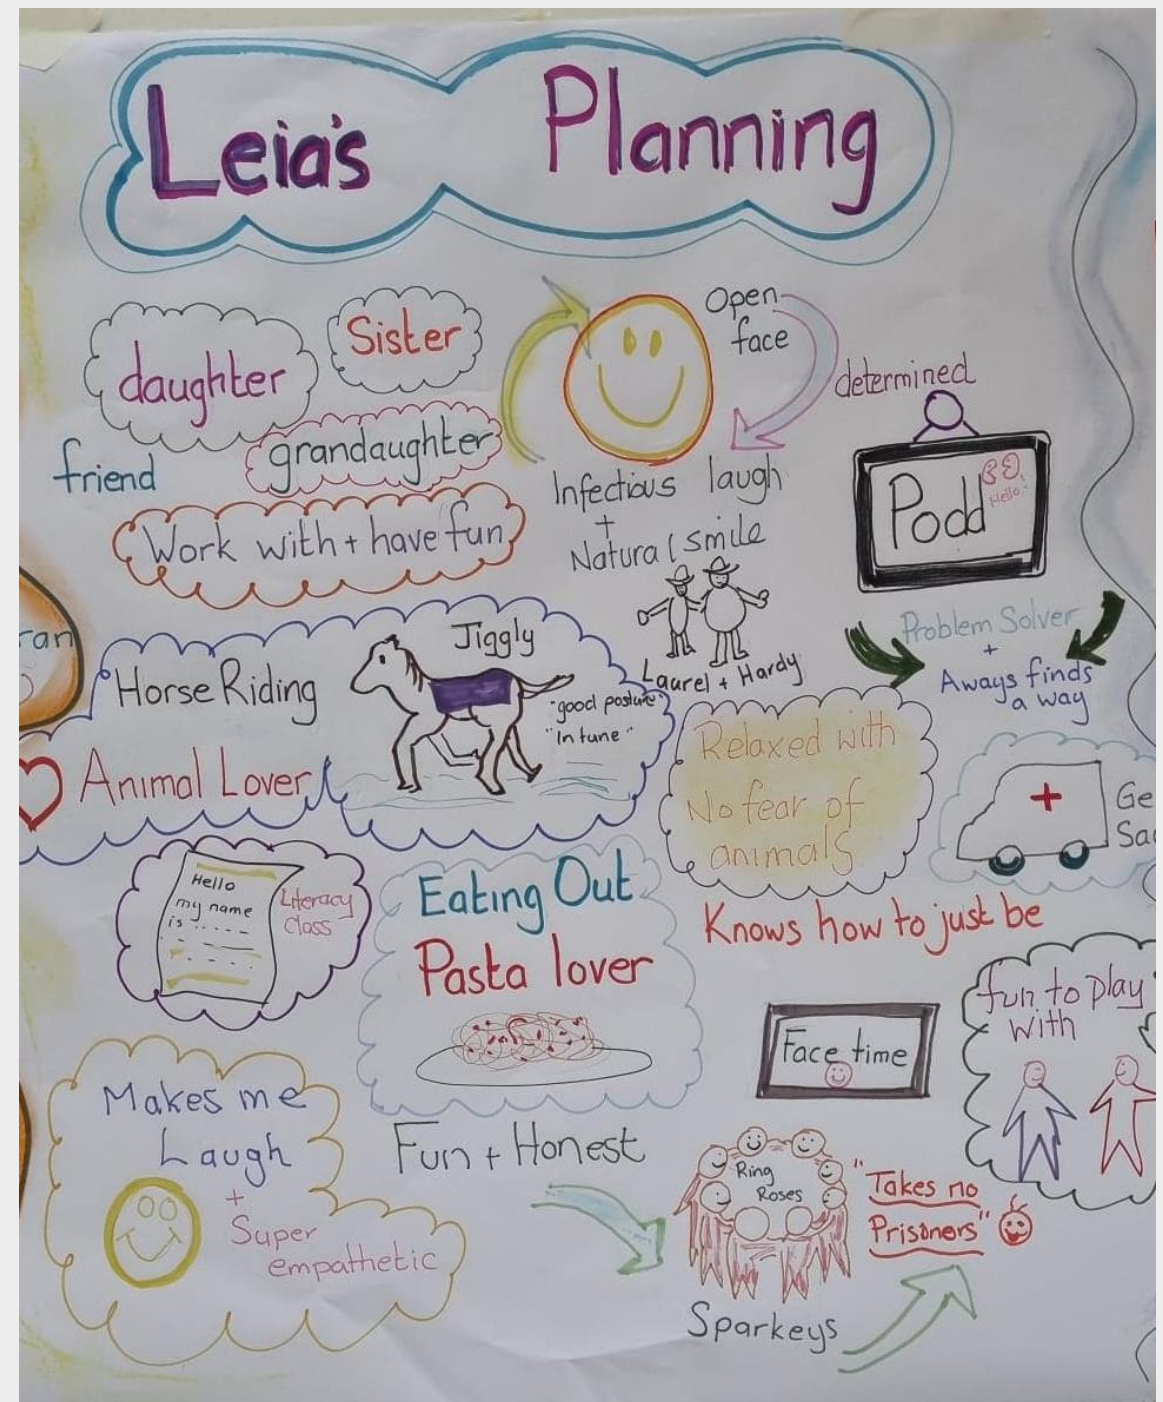 Leia's Planning
daughter
Sister
grandaughter
friend
Work with + have fun
Open
face
Infectious laugh
+
Natural smile
determined
Podd
Hello
Laurel + Hardy
Problem Solver
+
Aways finds
a way
ran
Horse Riding
Jiggly
"good posture"
"In tune"
Animal Lover
Relaxed with
No fear of
animals
Ge
Sa
Hello
my name
is .....
Literacy
class
Eating Out
Pasta lover
Knows how to just be
fun to play
with
Face time
Makes me
Laugh
+
Super
empathetic
Fun + Honest
Ring
Roses
"Takes no
Prisoners"
Sparkeys